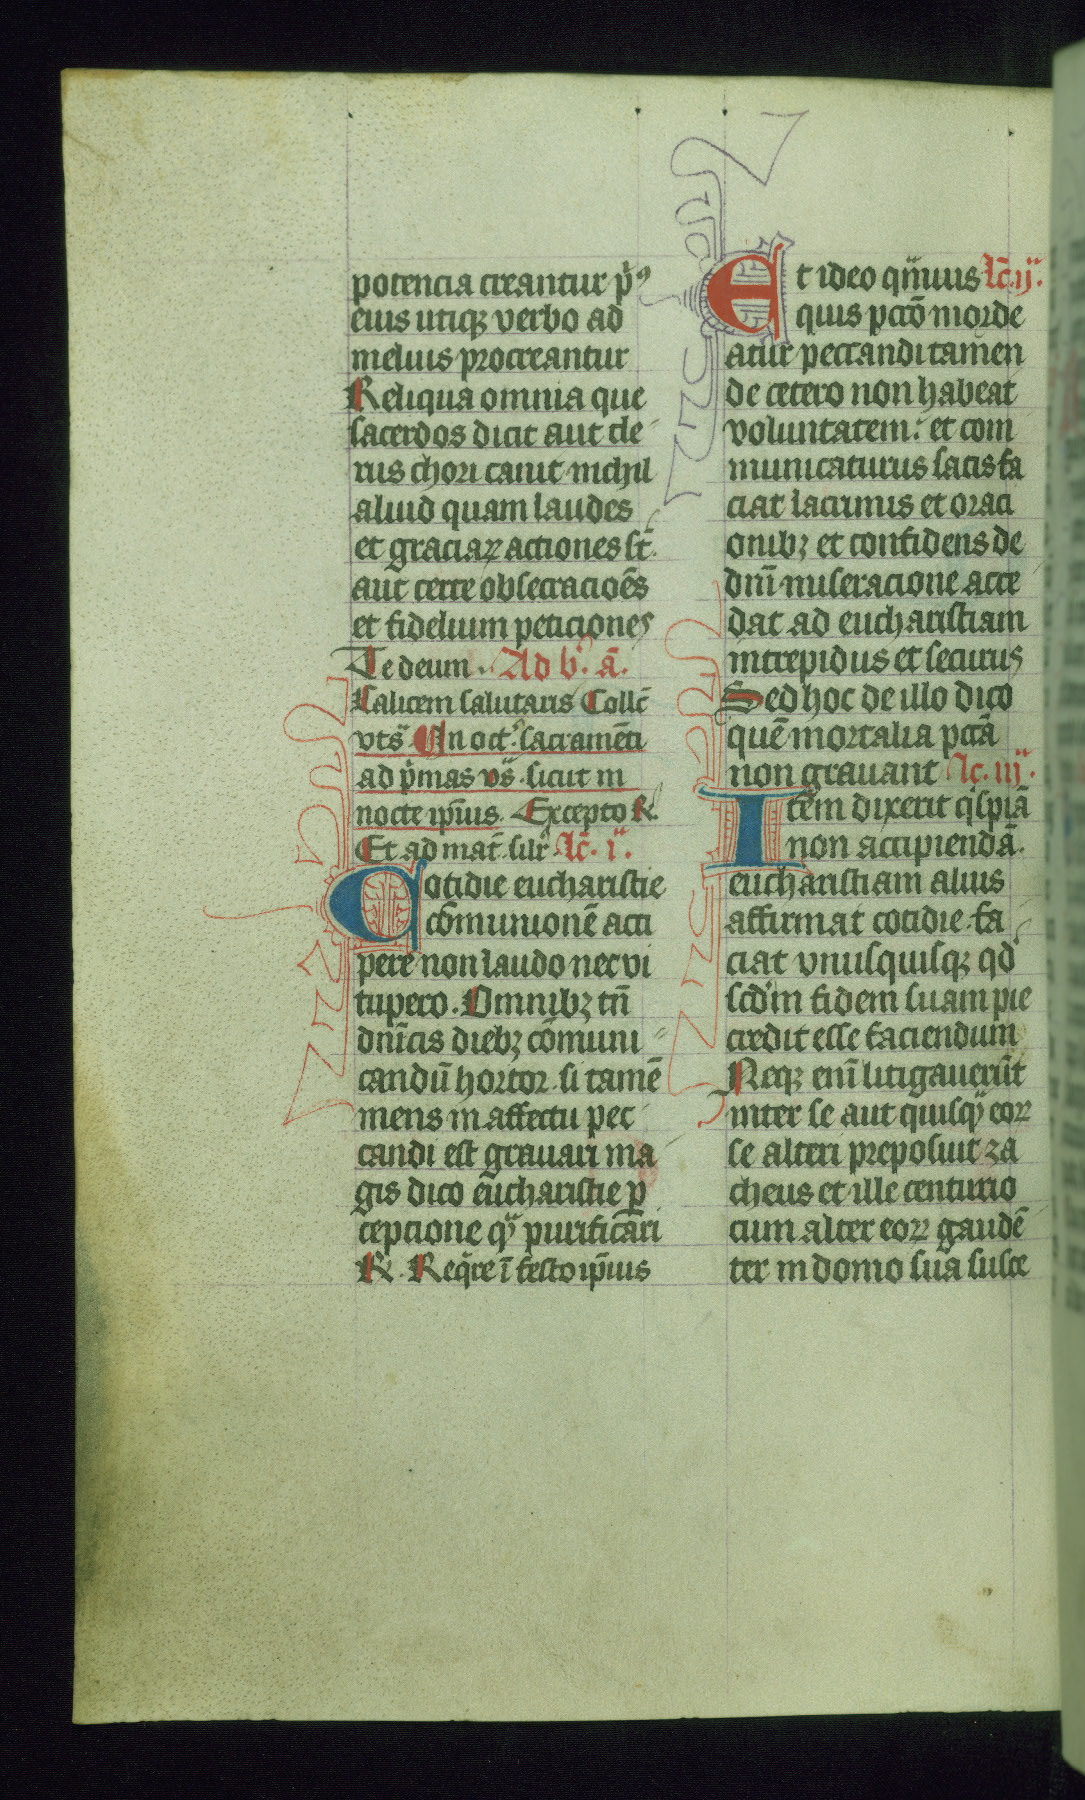 potencia creantur p̄⁹
eius utiqꝫ verbo ad
melius procreantur
Reliqua omnia que
sacerdos dicit aut cle
rus chori canit nichil
aliud quam laudes
et graciaꝝ actiones st̄.
aut certe obsecracio᷒es
et fidelium peticiones
Te deum. Ad b̄. ā.
Calicem salutaris Collc̄
vts̄. In oct. sacramēti
ad p̄mas vs̄. sicut in
nocte ip̄ius. Excepto R.
Et ad mat̄. silr̄ Lc̄. i.
Cotidie eucharistie
cōmunionē acci
pere non laudo nec vi
tupero. Omnibꝫ tn̄
dn̄icis diebꝫ cōmuni
candū hortor. si tamē
mens in affectu pec
candi est grauari ma
gis dico eucharistie ꝑ
cepcione qͣ purificari
R. Req̄re ī festo ip̄ius
Et ideo qͣmuis Lc̄. ij.
quis pccō morde
atur peccandi tamen
de cetero non habeat
voluntatem: et com
municaturus satisfa
ciat lacrimis et oraci
onibꝫ et confidens de
dn̄i miseracione acce
dat ad eucharistiam
intrepidus et securus
Sed hoc de illo dico
quē mortalia pccā
non grauant Lc̄. iij.
Item dixerit qͥspiā
non accipiendā.
eucharistiam alius
affirmat cotidie. fa
ciat vnusquisqꝫ qd̄
scd̄m fidem suam pie
credit esse faciendum
Neqꝫ enī litigauerūt
inter se aut quisqͣ eoꝝ
se alteri preposuit za
cheus et ille centurio
cum alter eoꝝ gaudē
ter in domo sua susce